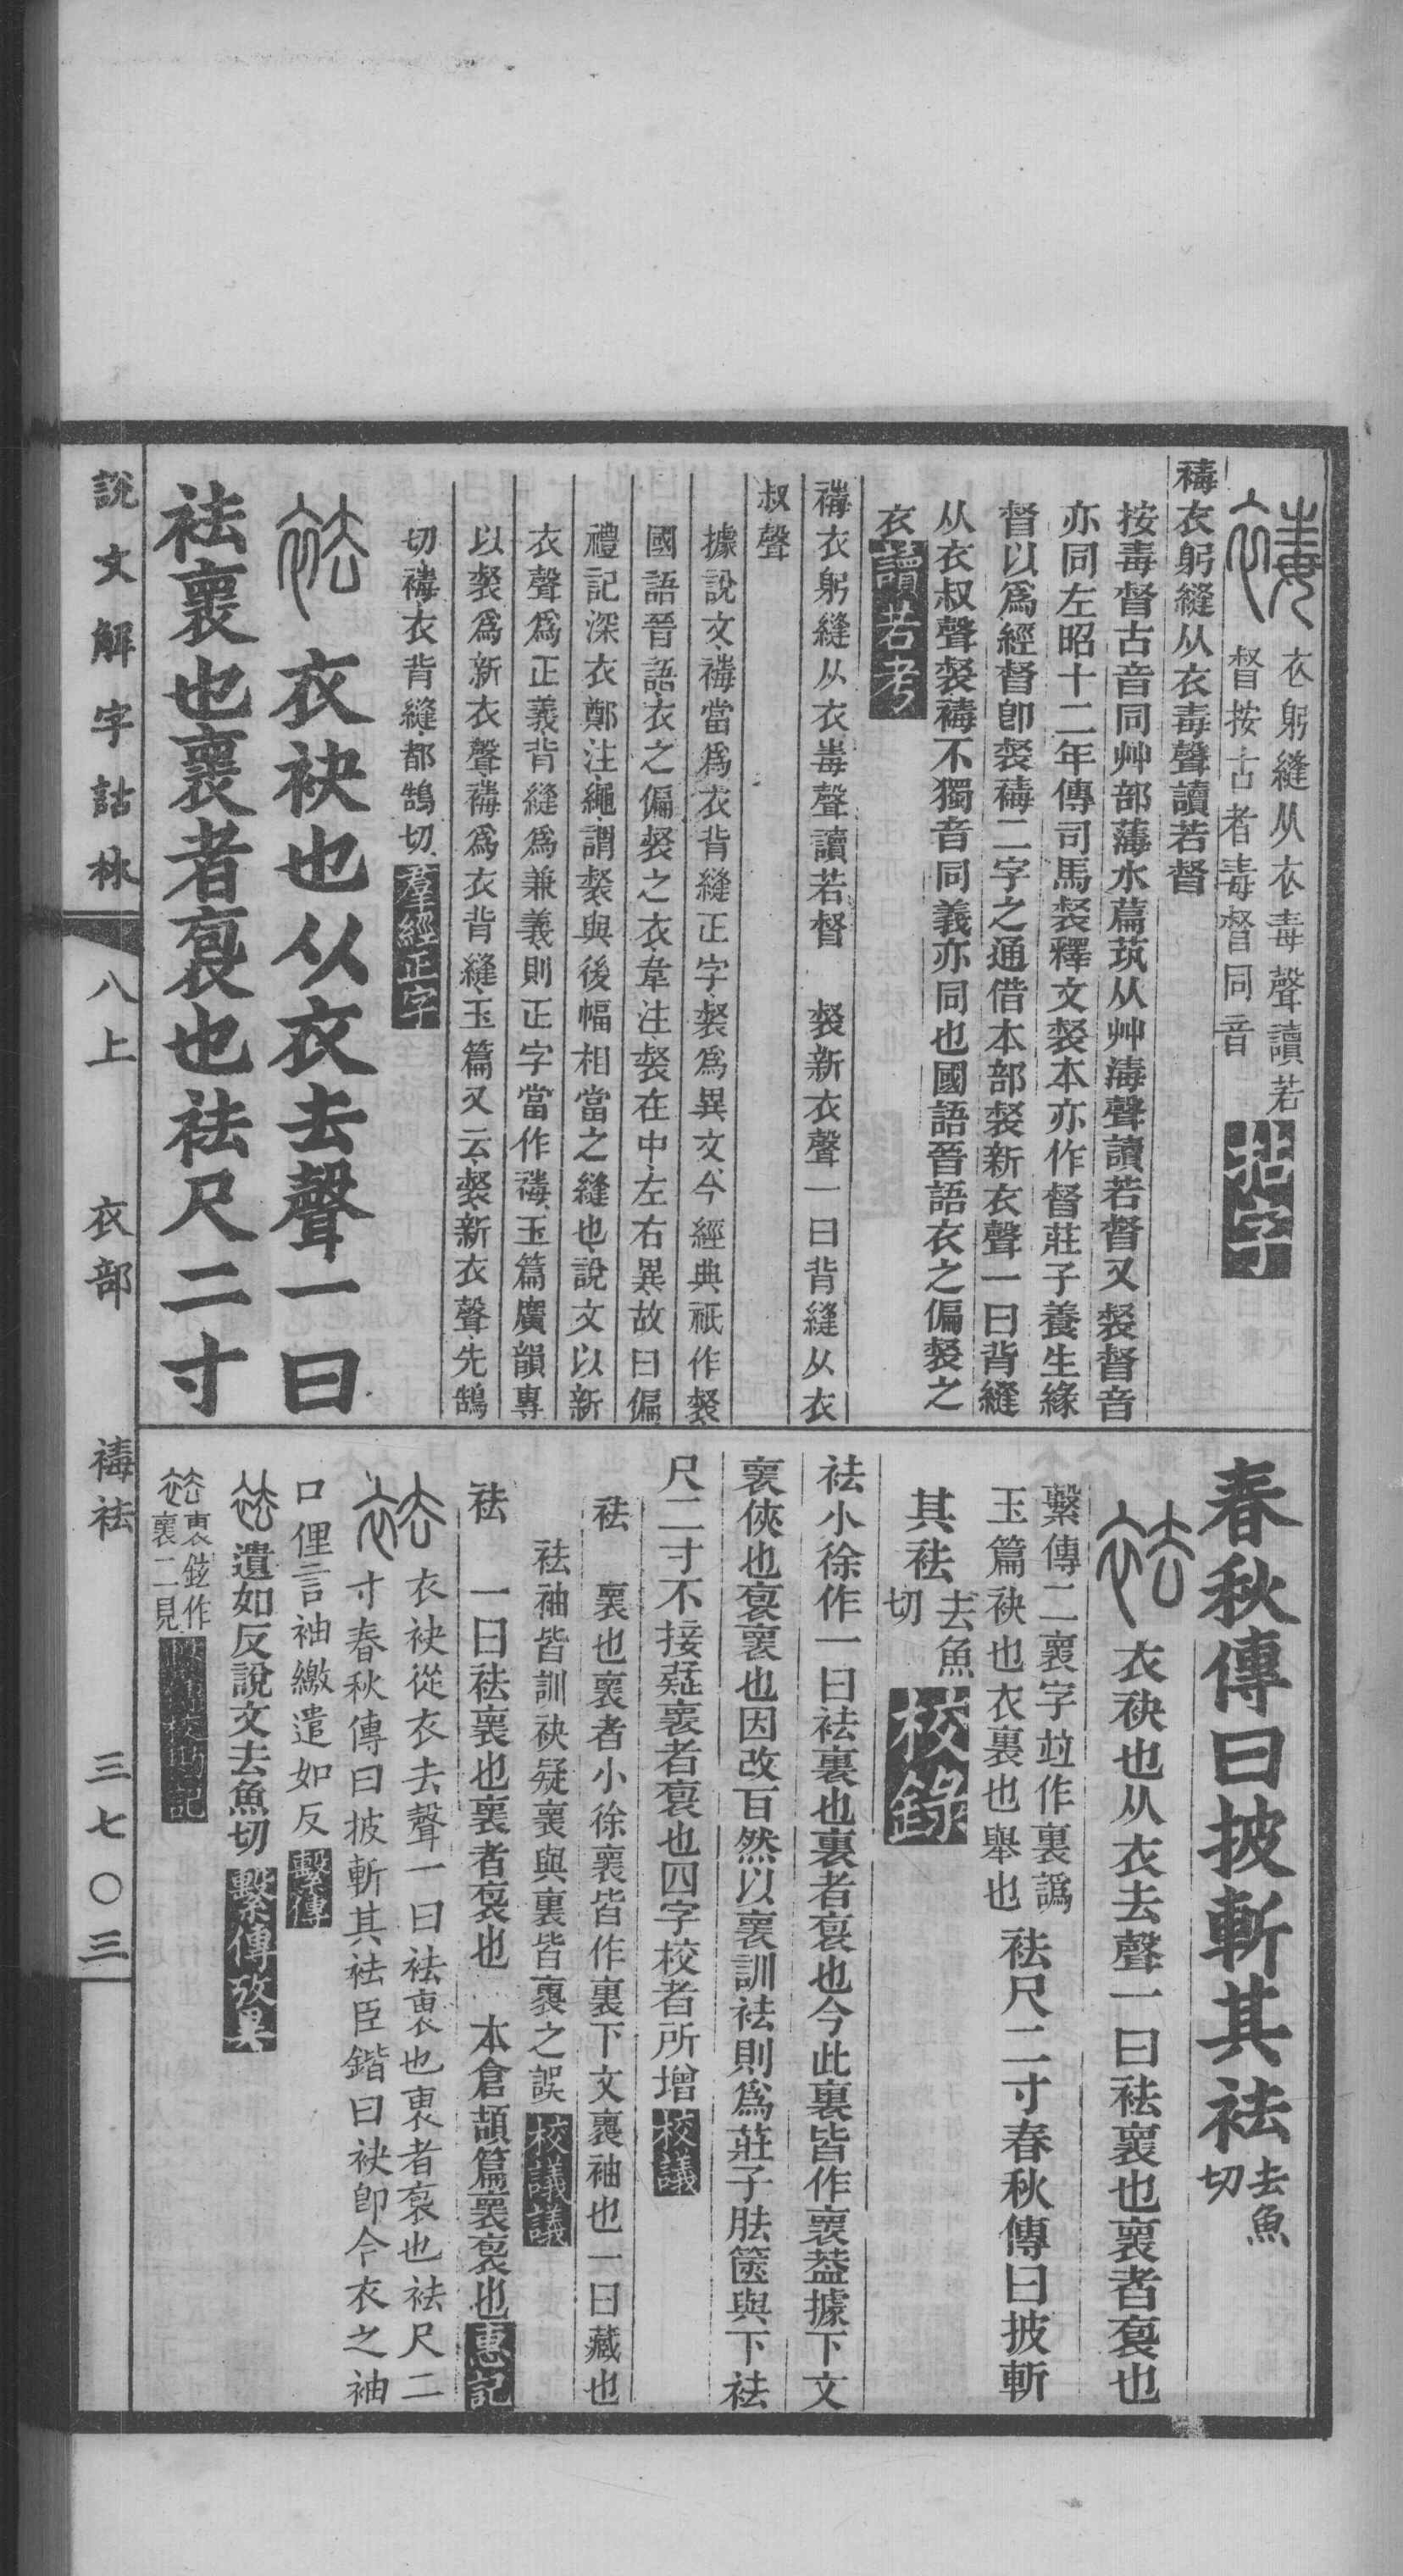 衣躬縫从衣毒聲讀若
督按古者毒督同音
𧝓衣躬縫从衣毒聲讀若督
按毒督古音同艸部薄水萹茿从艸𣾷聲讀若督又裻督音
亦同左昭十二年傳司馬裻釋文裻本亦作督莊子養生緣
督以爲經督卽裻𧝓二字之通借本部裻新衣聲一曰背縫
从衣叔聲裻𧝓不獨音同義亦同也國語晉語衣之偏裻之
衣讀若考
𧝓衣躬縫从衣毒聲讀若督 裻新衣聲一曰背縫从衣
叔聲
據說文𧝓當爲衣背縫正字裻爲異文今經典衹作裻
國語晉語衣之偏裻之衣韋注裻在中左右異故曰偏
禮記深衣鄭注繩謂裻與後幅相當之縫也說文以新
衣聲爲正義背縫爲兼義則正字當作𧝓玉篇廣韻專
以裻爲新衣聲𧝓爲衣背縫玉篇又云裻新衣聲先鵠
切𧝓衣背縫都鵠切羣經正字
衣袂也从衣去聲一曰
袪褱也褱者裦也袪尺二寸
春秋傳曰披斬其袪去魚切
衣袂也从衣去聲一曰袪褱也褱者裦也
繫傳二褱字竝作裏譌
玉篇袂也衣裏也舉也
袪尺二寸春秋傳曰披斬
其袪去魚切校錄
袪小徐作一曰袪裏也裏者裦也今此裏皆作褱葢據下文
褱俠也裦褱也因改百然以褱訓袪則爲莊子胠篋與下袪
尺二寸不接疑褱者裦也四字校者所增校議
袪 褱也褱者小徐褱皆作裏下文褎袖也一曰藏也
袪袖皆訓袂疑褱與裏皆褎之誤校議議
袪 一曰袪褱也褱者裦也 本倉頡篇褱裦也惠記
衣袂從衣去聲一曰袪裏也裏者裦也袪尺二
寸春秋傳曰披斬其袪臣鍇曰袂卽今衣之袖
口俚言袖繳遣如反繫傳
遣如反說文去魚切繫傳攷異
裏鉉作
褱二見
繫傳校勘記
說文解字詁林 八上 衣部 𧝓袪 三七〇三